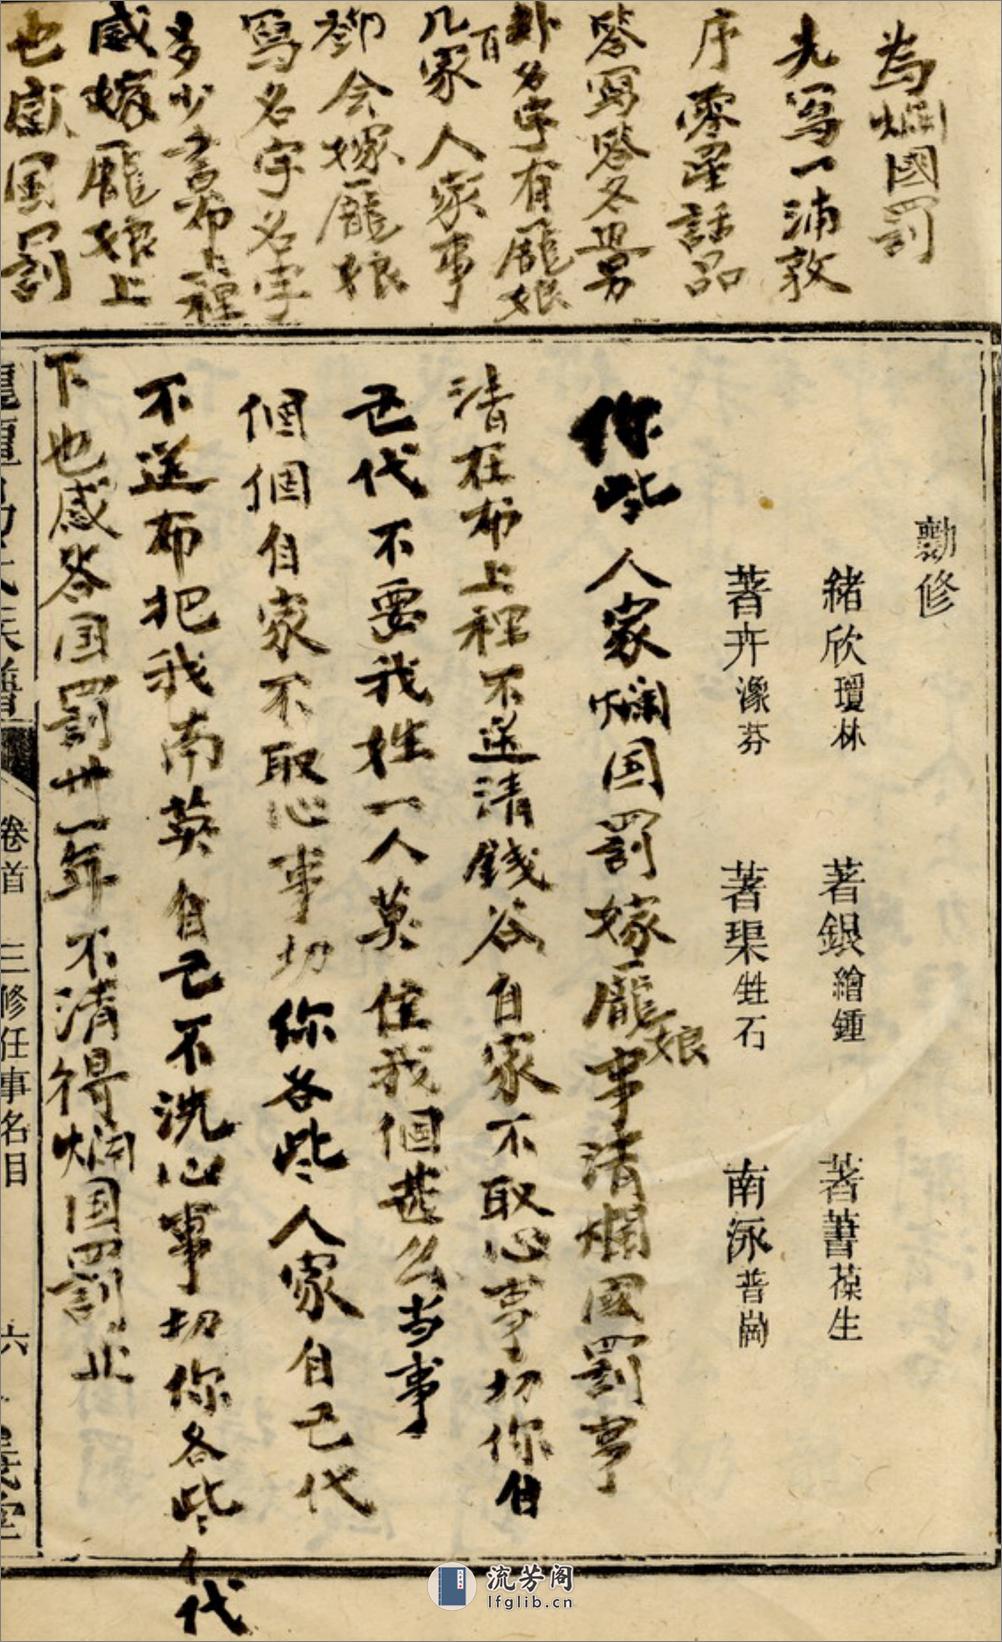 為爛國罰
先寫一浦敦
序零星話品
答寫答冬
名字有龎娘
几百家人家事
会嫁龎娘
寫名字名字
多少言布上裡
感嫁龎娘上
也感国罰
勷修
緒欣瓊林 著銀繪鍾 著書葆生
著卉濠芬 著琪甡石 南泳普崗
你些人家爛国罰嫁龎娘事清爛國罰事
清在布上裡不送清錢谷自家不取心事切你自
己代不要我姓一人莫住我個甚么当事
個個自家不取心事切你各些人家自己代
不送布把我南英自己不洗心事切你各些个代
下也感答国罰卅一年不清得爛国罰止
卷首 三修任事名目 六
流芳阁
lfglib.cn